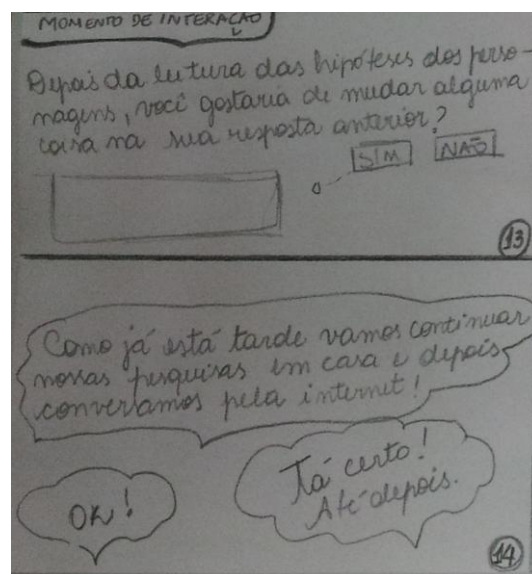 MOMENTO DE INTERAÇÃO
Depois da leitura das hipóteses dos perso-
nagens, você gostaria de mudar alguma
coisa na sua resposta anterior?
SIM NÃO
13
Como já está tarde vamos continuar
nossas pesquisas em casa e depois
conversamos pela internet!
OK!
Tá certo!
Até depois.
14